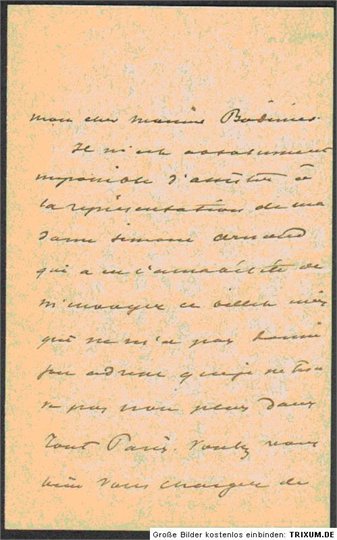 mon cher monsieur Bodinier.
Il m'est absolument
impossible d'assister à
la représentation de ma
dame simone arnaud
qui a eu l'amabilité de
m'envoyer ce billet mais
qui ne m'a pas donné
son adresse que je ne trou
ve pas non plus dans
Tout Paris. Voulez vous
bien vous charger de
Große Bilder kostenlos einbinden: TRIXUM.DE